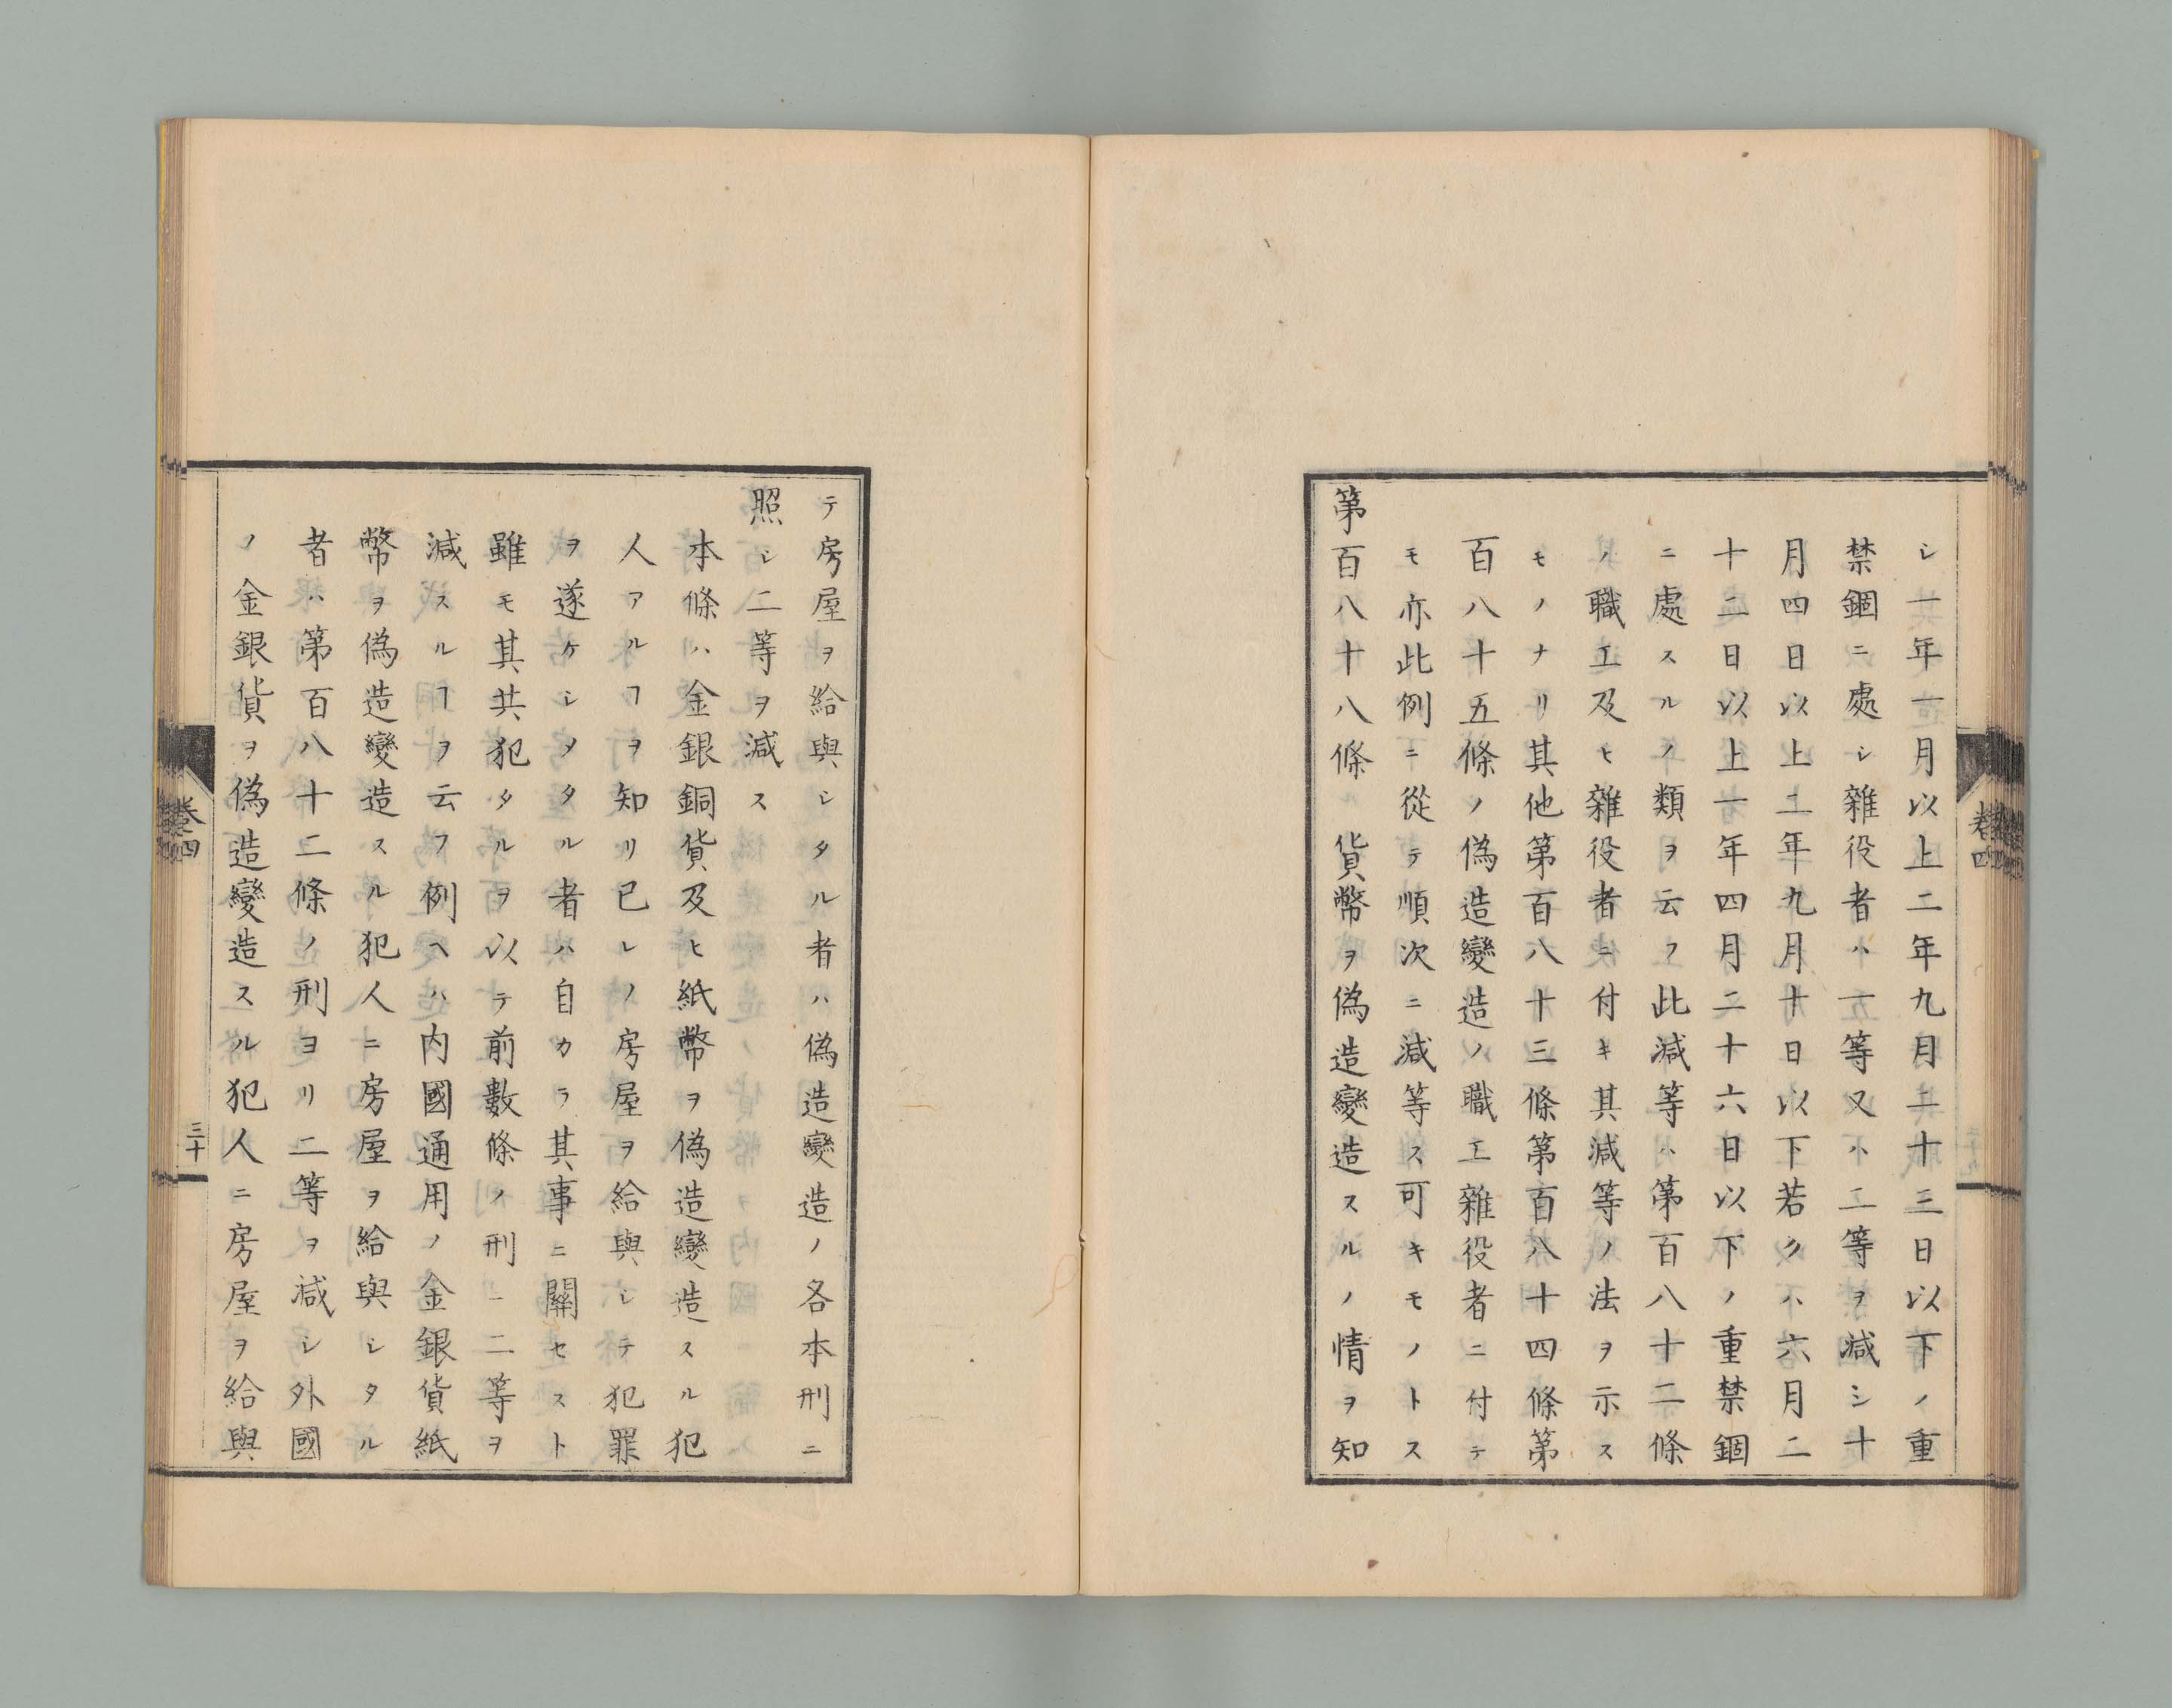 シ一年一月以上二年九月二十三日以下ノ重
禁錮ニ處シ雜役者ハ一等又ハ二等ヲ減シ十
月四日以上二年九月十日以下若クハ六月二
十二日以上一年四月二十六日以下ノ重禁錮
ニ處スルノ類ヲ云フ此減等ハ第百八十二條
ノ職工及ヒ雜役者ニ付キ其減等ノ法ヲ示ス
モノナリ其他第百八十三條第百八十四條第
百八十五條ノ偽造變造ノ職工雜役者ニ付テ
モ亦此例ニ從テ順次ニ減等ス可キモノトス
第百八十八條 貨幣ヲ偽造變造スルノ情ヲ知
卷四
テ房屋ヲ給與シタル者ハ偽造變造ノ各本刑ニ
照シ二等ヲ減ス
本條ハ金銀銅貨及ヒ紙幣ヲ偽造變造スル犯
人アルヿヲ知リ已レノ房屋ヲ給與シテ犯罪
ヲ遂ケシメタル者ハ自カラ其事ニ關セスト
雖モ其共犯タルヲ以テ前數條ノ刑ニ二等ヲ
減スルヿヲ云フ例ヘハ内國通用ノ金銀貨紙
幣ヲ偽造變造スル犯人ニ房屋ヲ給與シタル
者ハ第百八十二條ノ刑ヨリ二等ヲ減シ外國
ノ金銀貨ヲ偽造變造スル犯人ニ房屋ヲ給與
卷四
三十